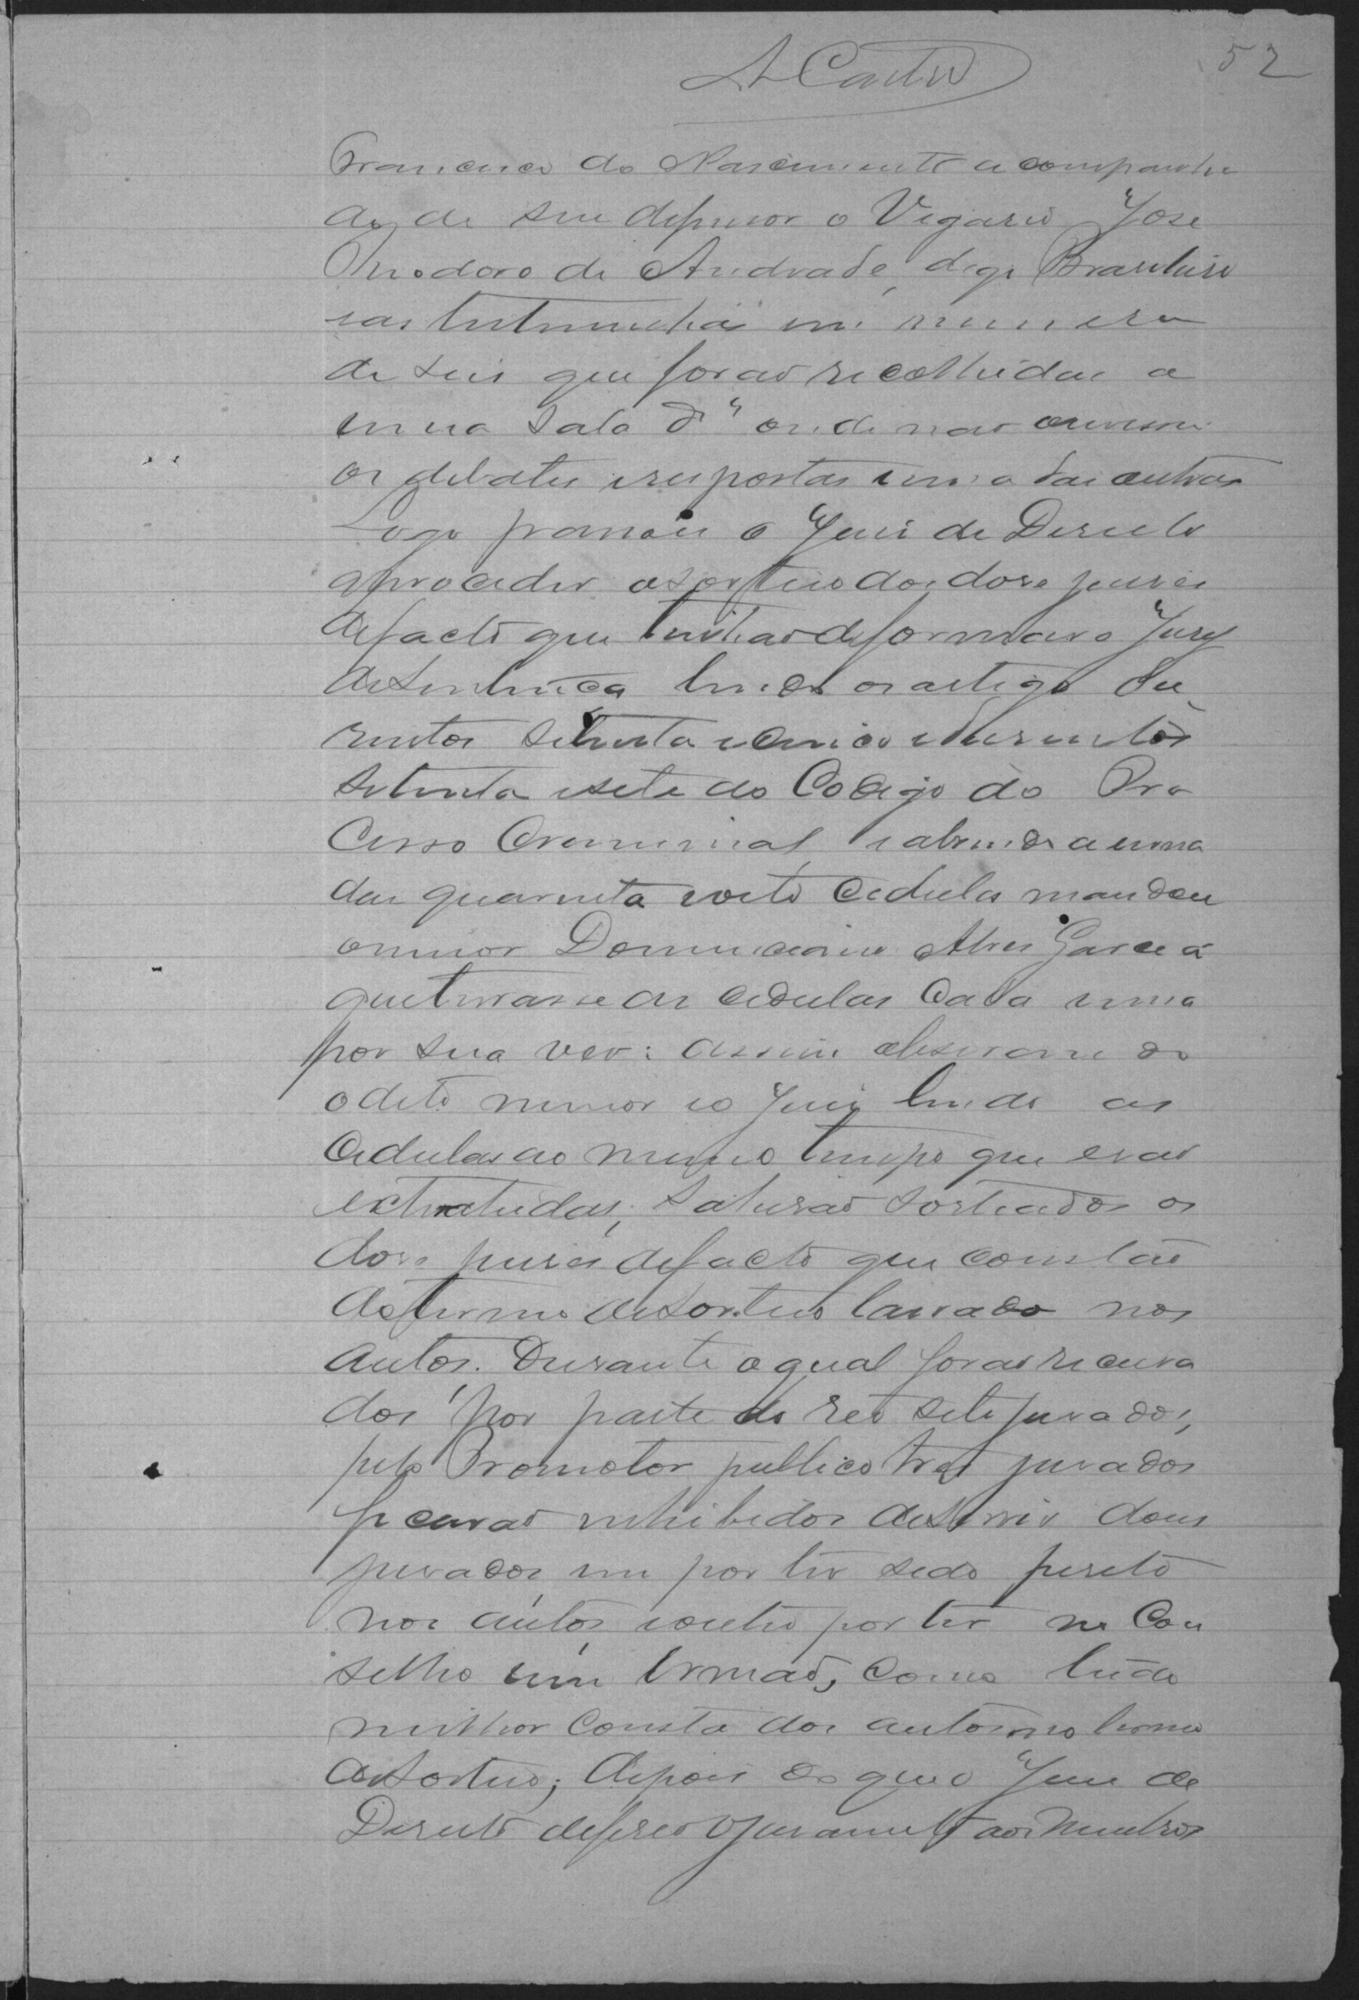 A Castro
52
Francisco do Nascimento acompanha
do de seu defensor o Vigario José
Theodoro de Andrade, digo Brasileiro
e as testemunhas em numero
de seis que forão recolhidas a
uma sala d'onde não ouvissem
os debates e respostas uma das outras
Logo passou o Juis de Direito
a proceder o sorteio dos dose juises
de facto que tinhão de formar o Jury
de sentença lendo os artigo du
sentos setenta e cinco e dusentos
setenta e sete do Codigo do Pro
cesso Criminal, e abrindo a urna
das quarenta e oito cedulas mandou
o menor Domiciano Alves Garcia
que tirasse as cedulas cada uma
por sua vez: assim observando
o dito menor e o Juis lendo as
cedulas ao mesmo tempo que erão
extrahidas, sahirão sorteados os
dose juises de facto que constão
do termo de sorteio lavrado nos
autos. Durante o qual forão recusa
dos por parte do reo sete jurados,
pelo Promotor publico tres jurados
ficarão inhibidos de servir dous
jurados, um por ter sido perito
nos autos e outro por ter no Con
selho um irmão, como tudo
melhor consta dos autos no termo
de sorteio; depois do que o Juis de
Direito deferio o juramento aos membros